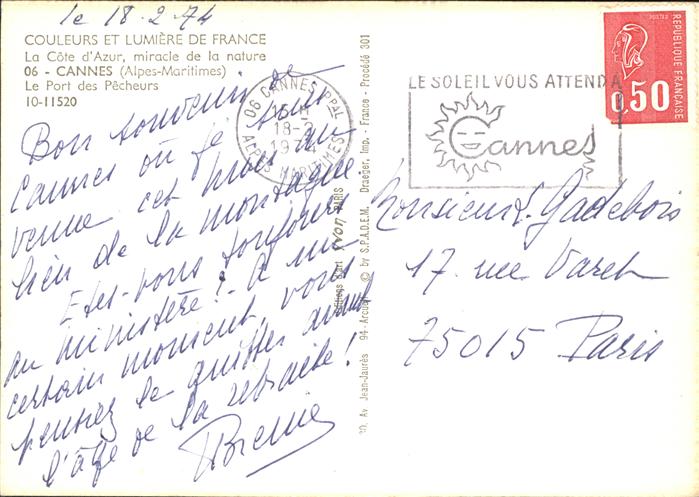 le 18-2-74
COULEURS ET LUMIÈRE DE FRANCE
La Côte d'Azur, miracle de la nature
06 - CANNES (Alpes-Maritimes)
Le Port des Pêcheurs
10-11520
Bon souvenir de
Cannes où je suis
venue cet hiver au
lieu de la montagne
Etes-vous toujours
au ministère ? - A un
certain moment, vous
pensiez le quitter avant
l'âge de la retraite !
06 CANNES PPAL
18-2
1974
ALPES MARITIMES
LE SOLEIL VOUS ATTEND A
Cannes
POSTES
REPUBLIQUE FRANÇAISE
0,50
Editions d'art Yvon PARIS
© by S.P.A.D.E.M. Draeger, Imp. - France - Procédé 301
Av Jean-Jaurès 94-Arcueil
Monsieur L. Gadebois
17. rue Varet
75015 Paris